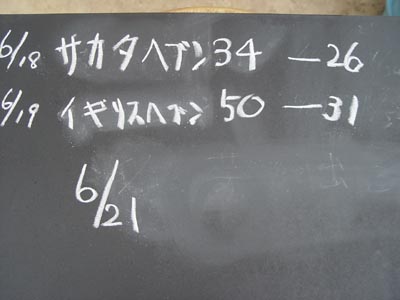 6/18 サカタヘブン 34 —26
6/19 イギリスヘブン 50 —31
6/21